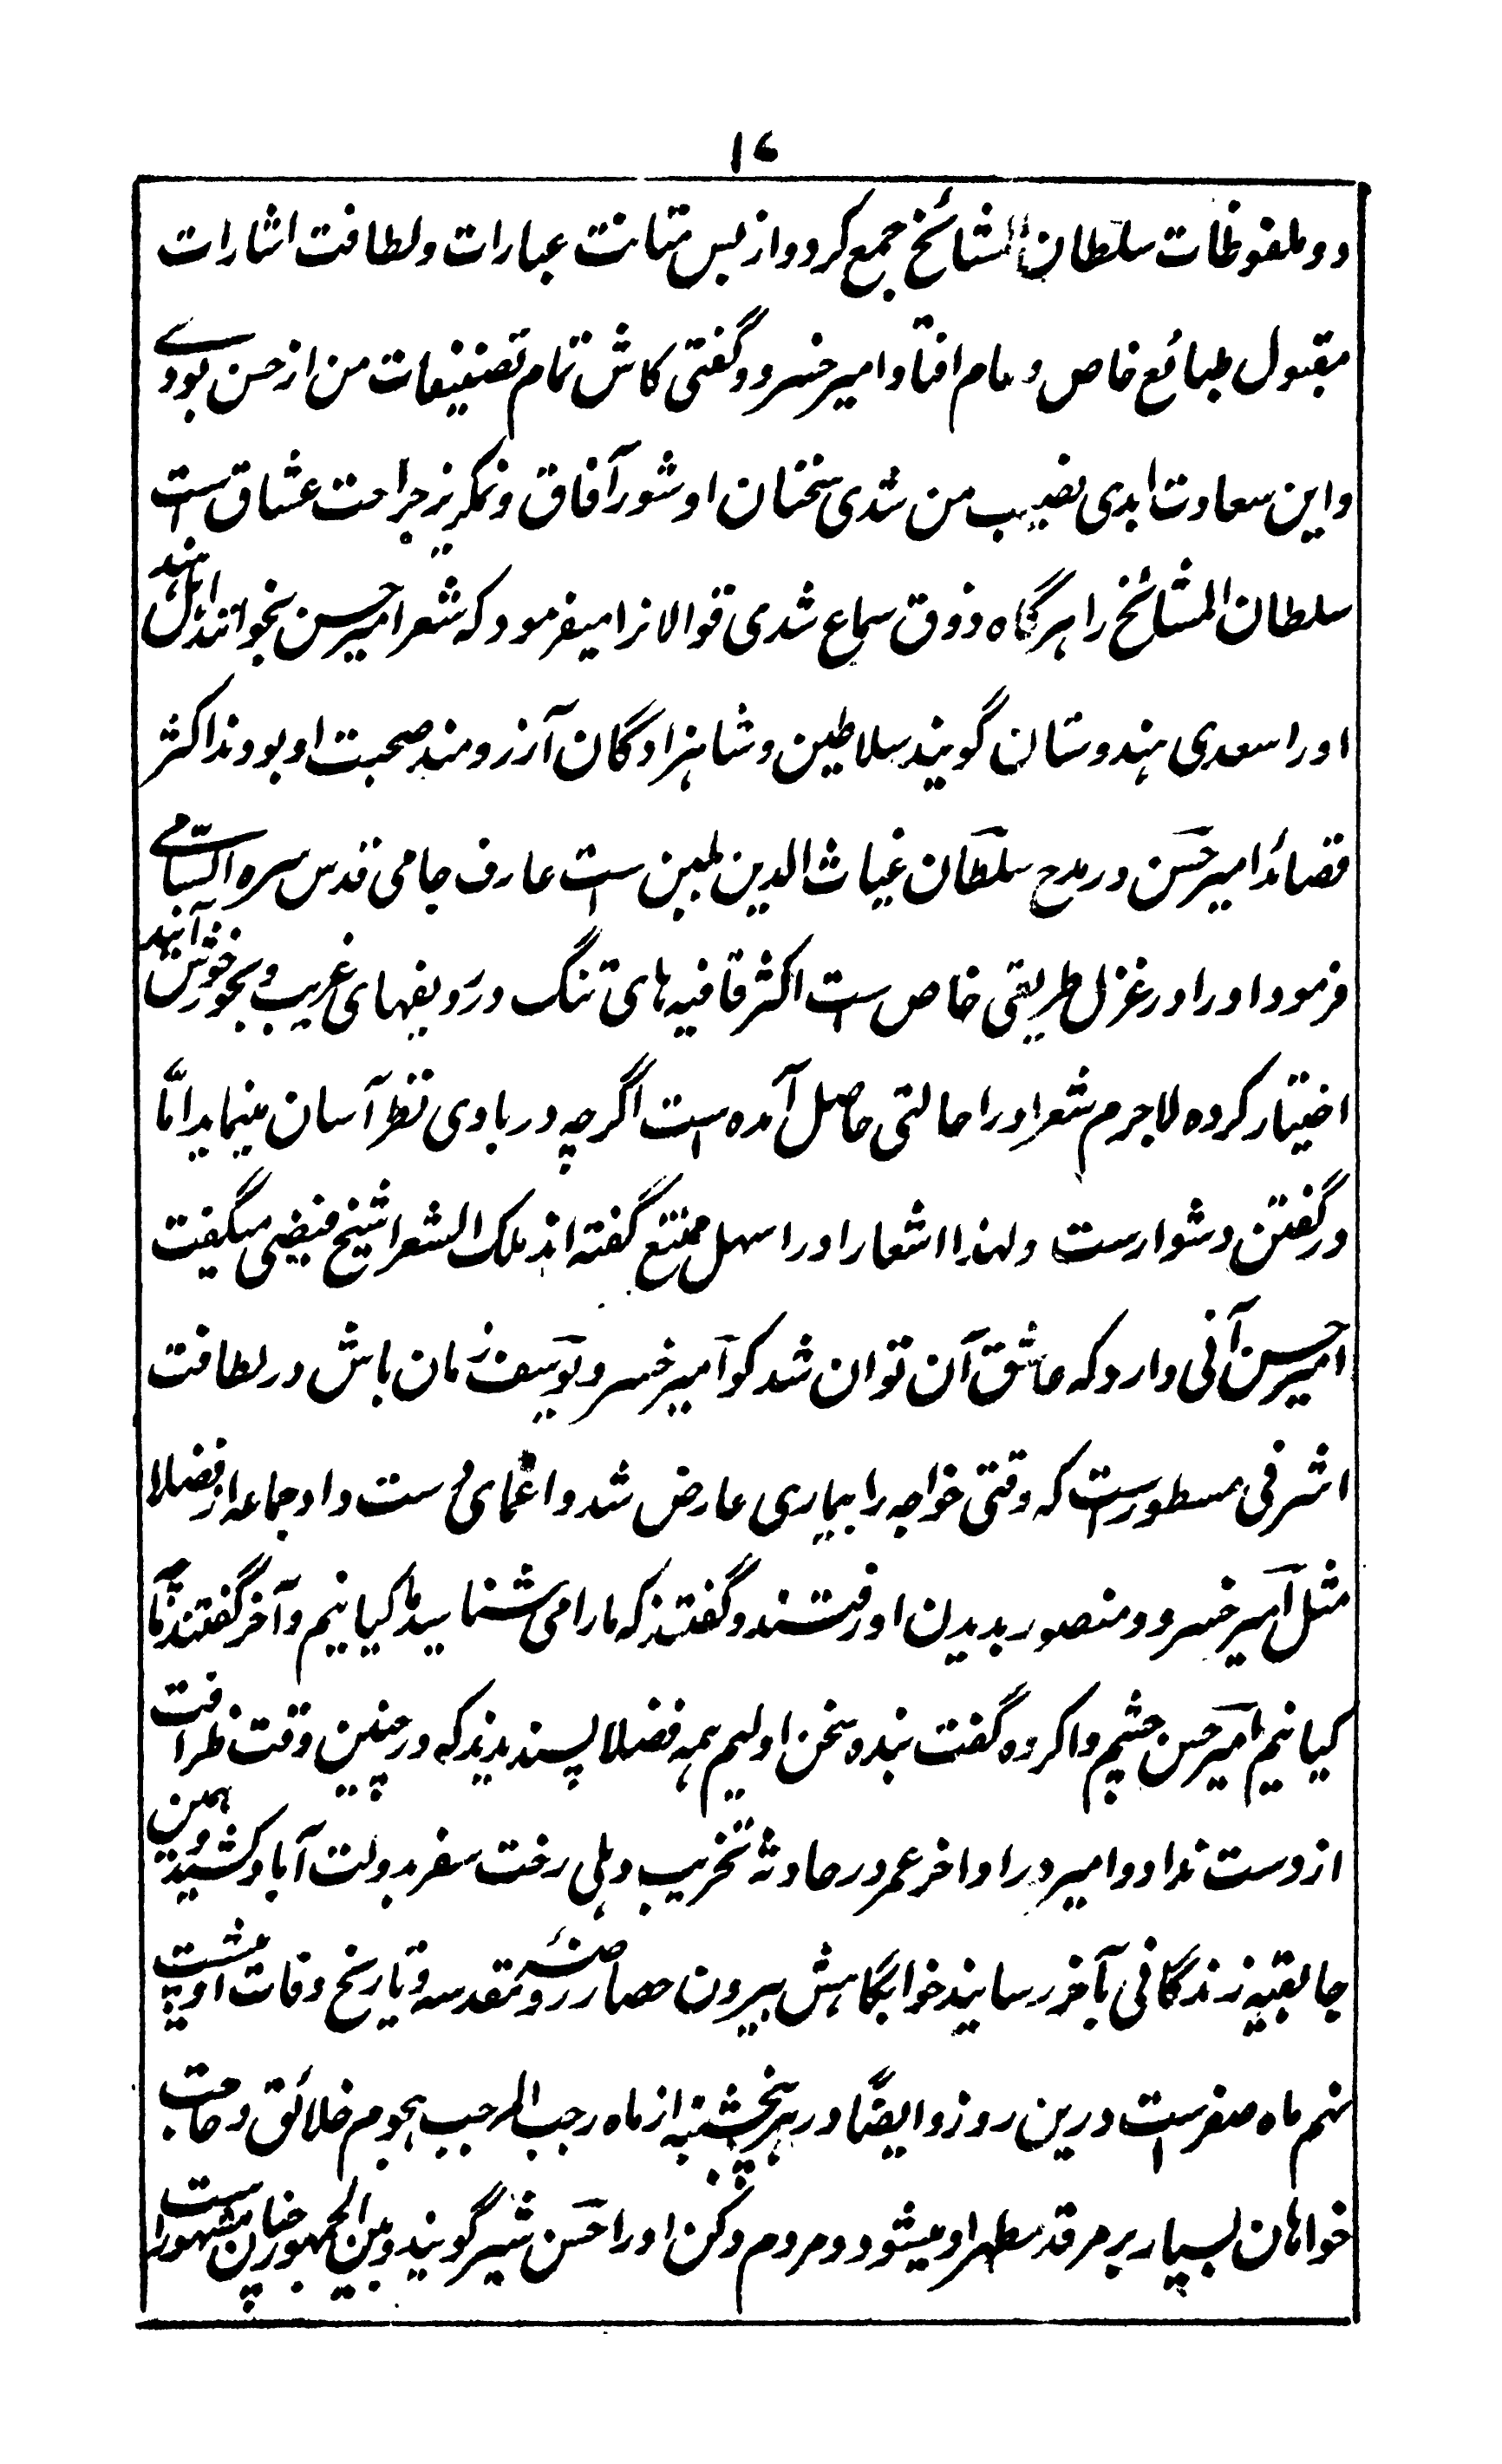 ۱۷
دو ملفوظات سلطان المشائخ جمع کرد و از بس متانت عبارات و لطافت اشارات
مقبول طبائع خاص و عام افتاد امیر خسرو گفتی کاش تمام تصنیفات من از حسن بودے
و این سعادت ابدی نصیب من شدی سخنان او شور آفاق و نمکریز جراحت عشاق ست
سلطان المشائخ را هرگاه ذوق سماع شدی قوالانرا میفرمود که شعر امیر حسن بخوانند اهل هند
او را سعدی هندوستان گویند سلاطین و شاهزادگان آرزومند صحبت او بودند اکثر
قصائد امیر حسن در مدح سلطان غیاث الدین بلبن ست عارف جامی قدس سره السّامے
فرمود او را در غزل طریقی خاص ست اکثر قافیه های تنگ و ردیفهای غریب و بحور خوش آیند
اختیار کرده لاجرم شعر او را حالتی حاصل آمده است اگرچه در بادی نظر آسان مینماید امّا
در گفتن دشوارست و لهذا اشعار او را سهل ممتنع گفته اند ملک الشعرا شیخ فیضی میگفت
امیر حسن آنی دارد که عاشق آن توان شد کو امیر خسرو یوسف زمان باش در لطافت
اشرفی مسطورست که وقتی خواجه را بیماری عارض شد و اغمای دست داد جماعه از فضلا
مثل امیر خسرو و منصور بدیدن او رفتند و گفتند که ما را می شناسید ما کیانیم و آخر گفتند ما
کیانیم امیر حسن چشم وا کرده گفت بنده سخن اولیم همه فضلا پسندیدند که در چنین وقت ظرافت
از دست نداد و امیر در اواخر عمر در حادثهٔ تخریب دهلی رخت سفر بدولت آباد کشید و همین
جا بقیه زندگانی بآخر رسانید خوابگاهش بیرون حصار روضهٔ مقدسه و تاریخ وفات او بیست
نهم ماه صفرست درین روز و ایضاً در هر پنجشنبه از ماه رجب المرجب هجوم خلائق و حاجت
خواهان بسیار بر مرقد مطهر او میشود و مردم دکن او را حسن شیر گویند و بین الجمهور چنان مشهور است